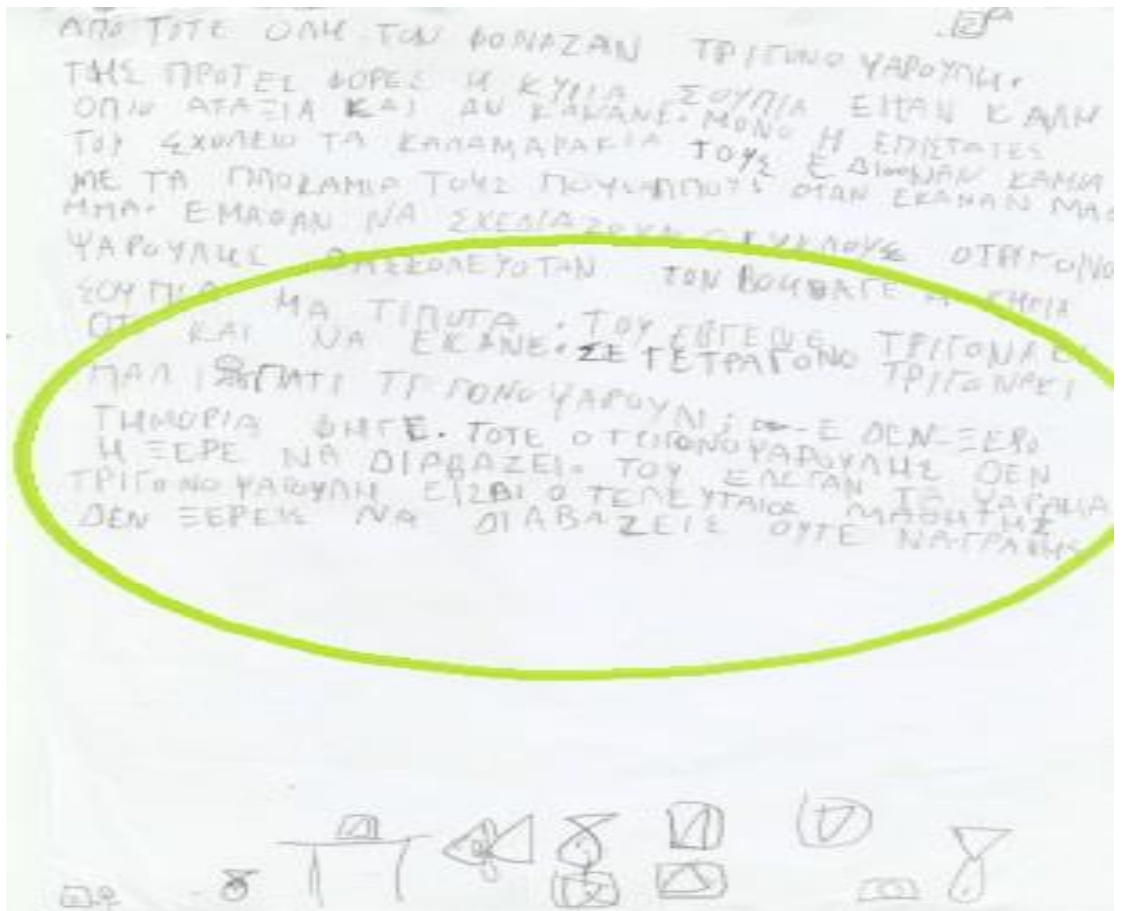 ΑΠΟ ΤΟΤΕ ΟΛΗ ΤΟΝ ΦΟΝΑΖΑΝ ΤΡΙΓΟΝΟΨΑΡΟΥΛΗ.
ΤΗΣ ΠΡΟΤΕΣ ΦΟΡΕΣ Η ΚΥΡΙΑ ΣΟΥΠΙΑ ΕΙΤΑΝ ΚΑΛΗ
ΑΤΑΞΙΑ ΚΑΙ ΑΝ ΕΚΑΝΑΝΕ. ΜΟΝΟ Η ΕΠΙΣΤΑΤΕΣ
ΤΟΥ ΣΧΟΛΕΙΟ ΤΑ ΚΑΛΑΜΑΡΑΚΙΑ ΤΟΥΣ ΕΔΙΝΑΝ ΚΑΜΙΑ
ΜΕ ΤΑ ΠΛΟΚΑΜΙΑ ΤΟΥΣ ΟΤΑΝ ΕΚΑΝΑΝ ΜΑΘ
ΗΜΑ. ΕΜΑΘΑΝ ΝΑ ΣΚΕΔΙΑΖΟΥΝ ΚΥΚΛΟΥΣ ΟΤΡΙΓΟΝΟ
ΨΑΡΟΥΛΗΣ ΤΟΝ Η ΚΗΡΙΑ
ΣΟΥΠΙΑ ΜΑ ΤΙΠΟΤΑ. ΤΟΥ ΕΒΓΕΝΕ ΤΡΙΓΟΝΑΚΙ
ΟΤΙ ΚΑΙ ΝΑ ΕΚΑΝΕ. ΣΕ ΤΕΤΡΑΓΟΝΟ ΤΡΙΓΟΝΑΚΙ
ΠΑΛΙ ΓΙΑΤΙ ΤΡΙΓΟΝΟΨΑΡΟΥΛΗ; Ε ΔΕΝ ΞΕΡΟ
ΤΗΜΟΡΙΑ ΦΗΓΕ. ΤΟΤΕ Ο ΤΡΙΓΟΝΟΨΑΡΟΥΛΗΣ ΔΕΝ
Η ΞΕΡΕ ΝΑ ΔΙΑΒΑΖΕΙ. ΤΟΥ ΕΛΕΓΑΝ ΤΑ ΨΑΡΑΚΙΑ
ΤΡΙΓΟΝΟΨΑΡΟΥΛΗ ΕΙΣΕ Ο ΤΕΛΕΥΤΑΙΟΣ ΜΑΘΗΤΗΣ
ΔΕΝ ΞΕΡΕΙΣ ΝΑ ΔΙΑΒΑΖΕΙΣ ΟΥΤΕ ΝΑ ΓΡΑΦΗΣ